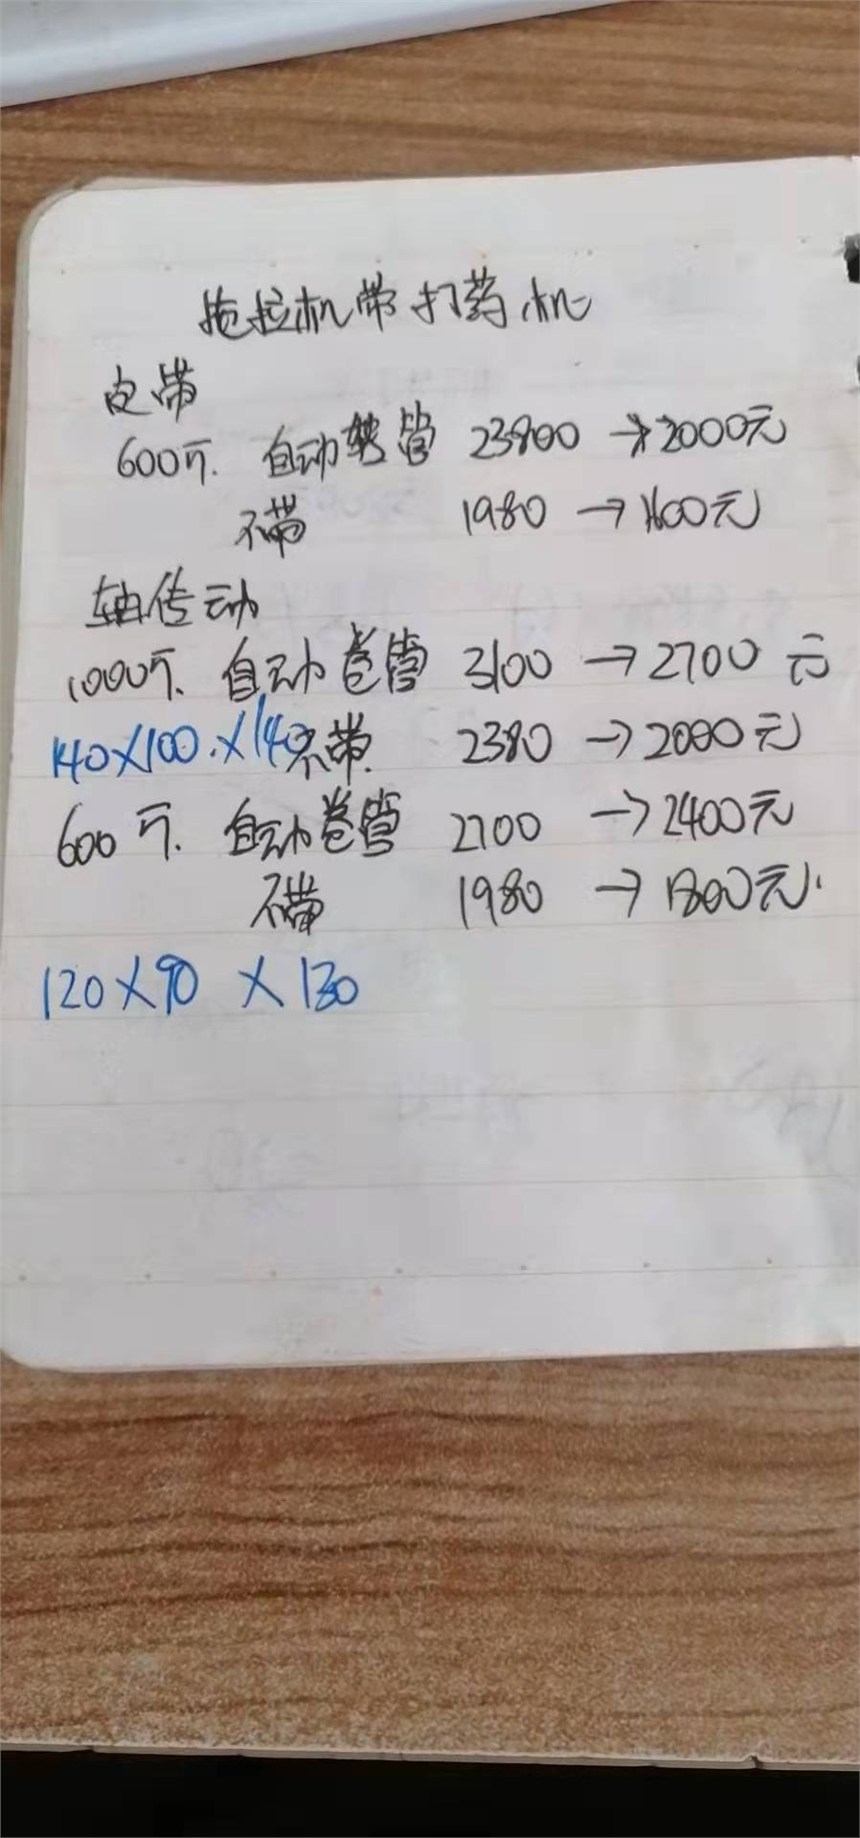 拖拉机带打药机
皮带
600斤. 自动卷管 23800 → 2000元
不带 1980 → 1600元
轴传动
1000斤. 自动卷管 3100 → 2700元
140×100.×140 不带. 2380 → 2000元
600斤. 自动卷管 2700 → 2400元
不带 1980 → 1800元.
120×90 ×130